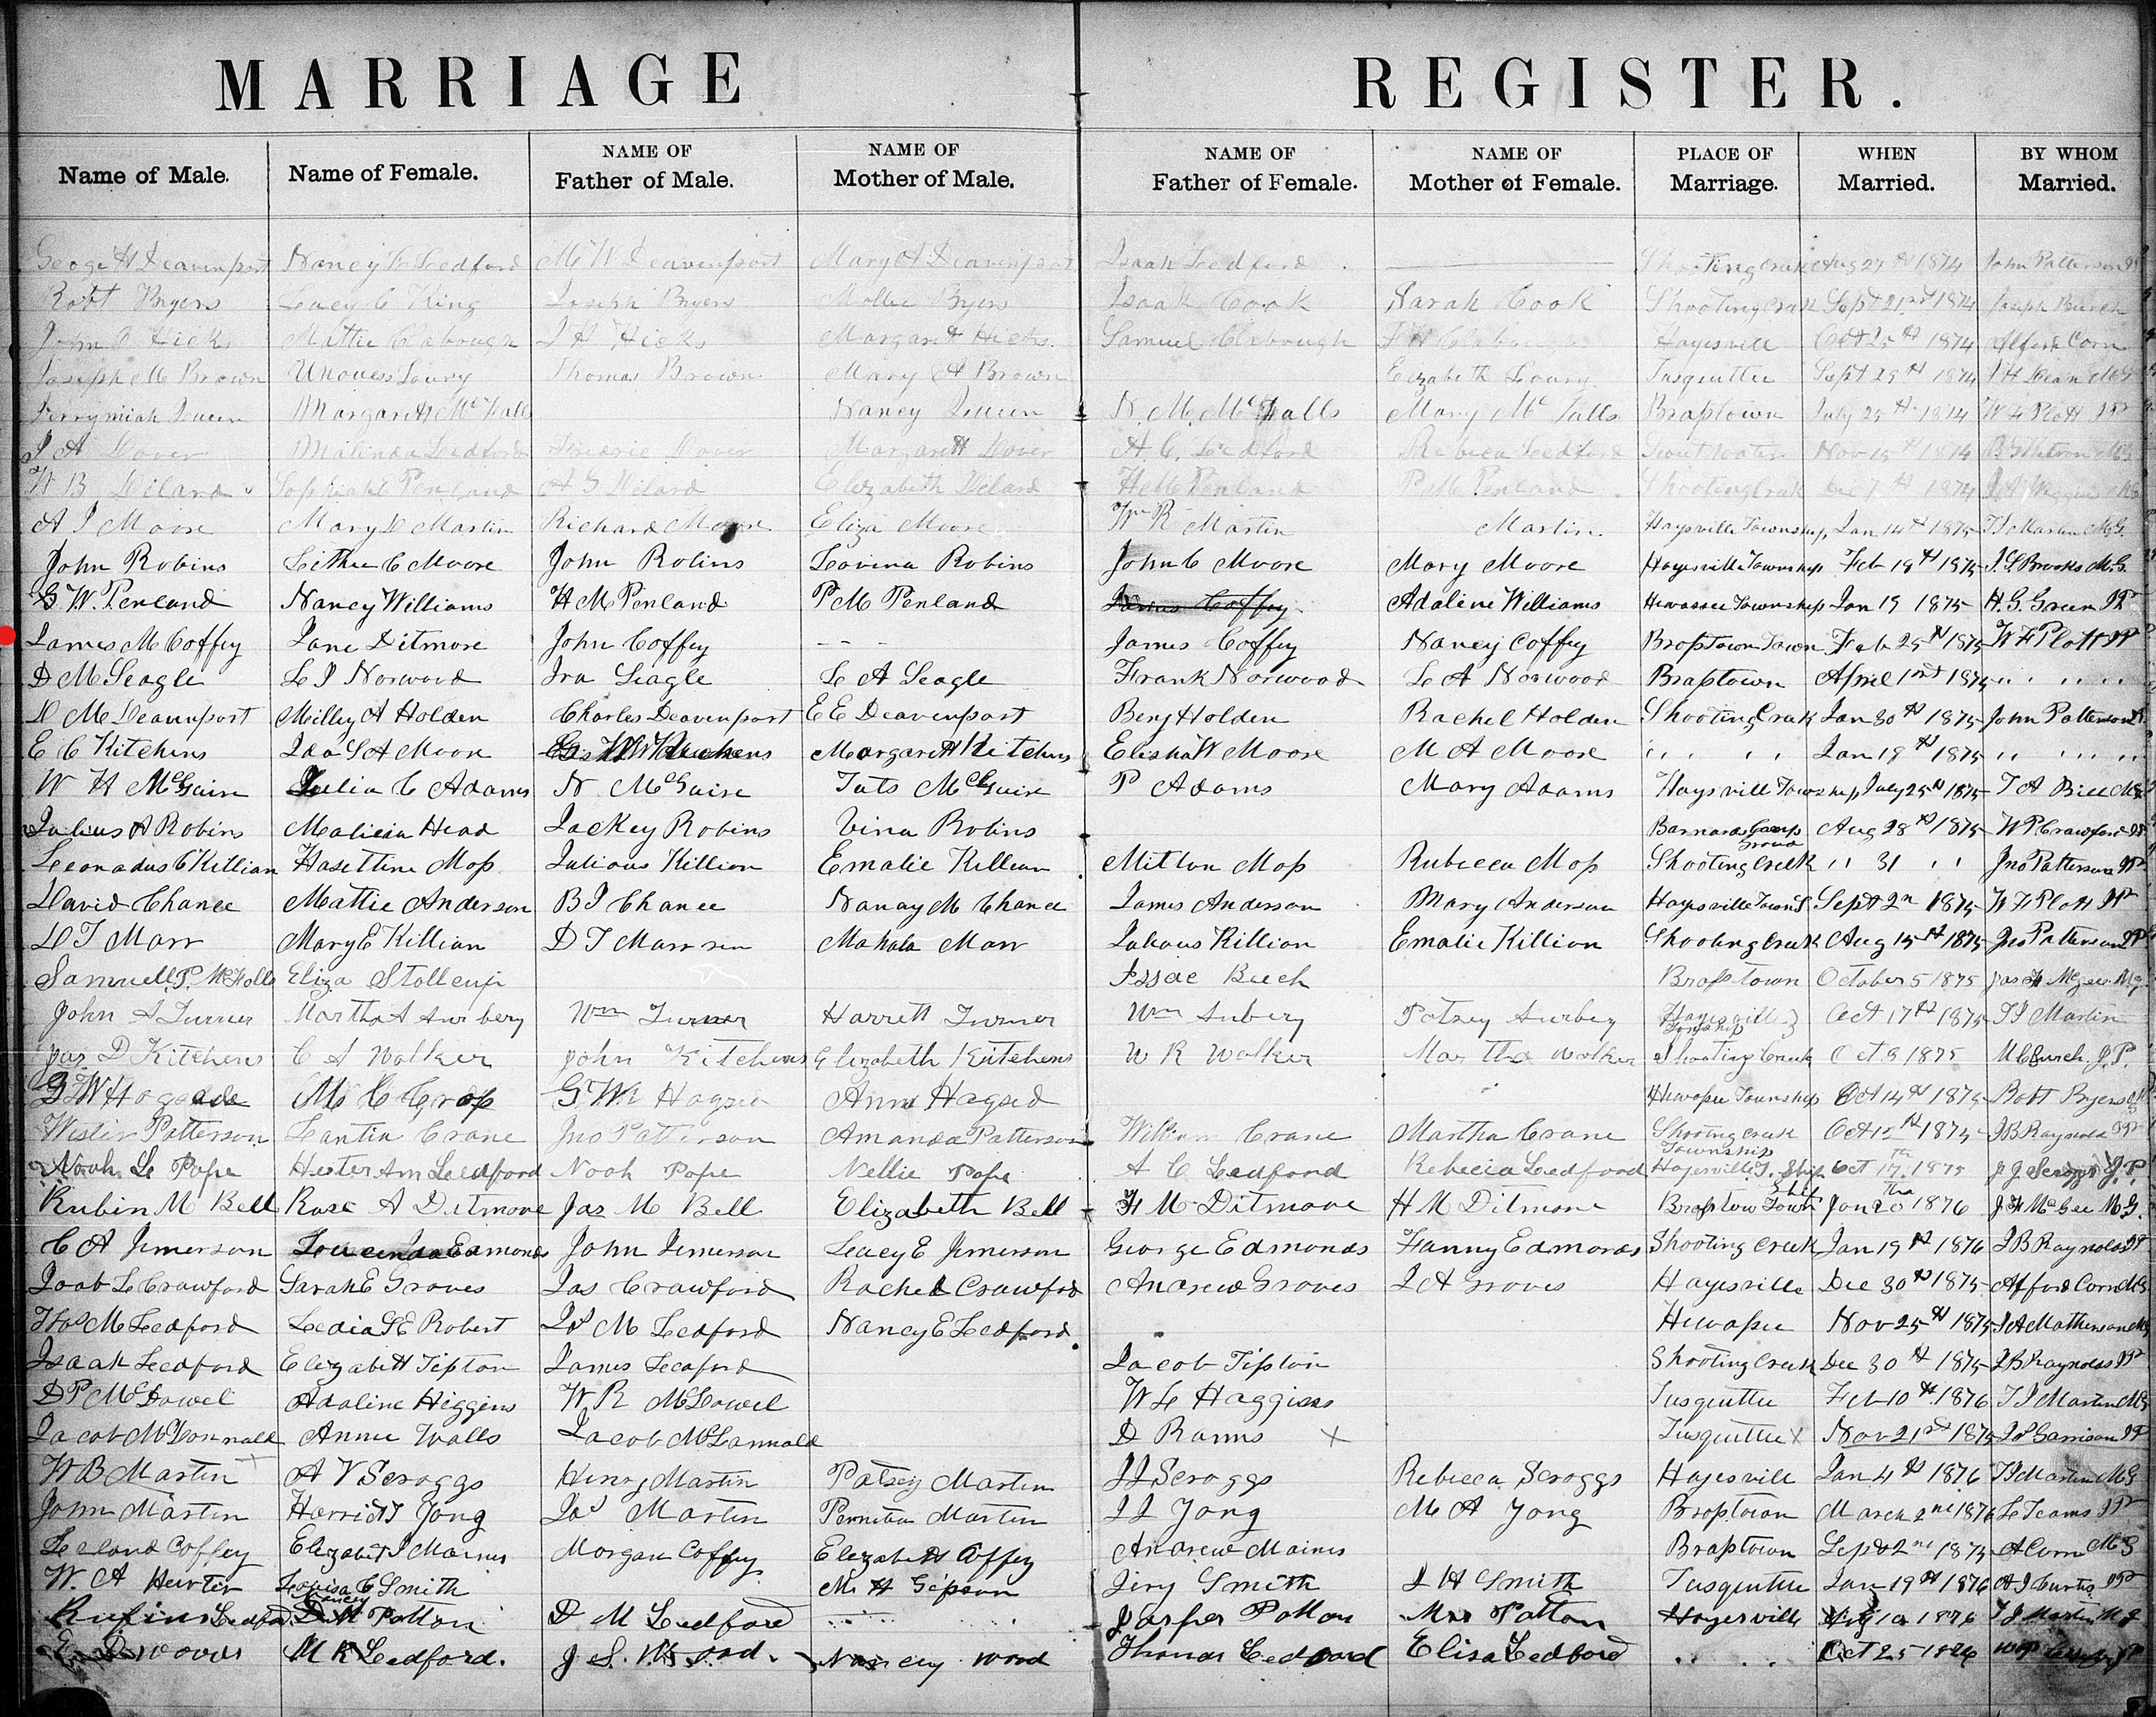 MARRIAGE REGISTER.
Name of Male. Name of Female. NAME OF Father of Male. NAME OF Mother of Male. NAME OF Father of Female. NAME OF Mother of Female. PLACE OF Marriage. WHEN Married. BY WHOM Married.
Geoge H Deavenport Nancy L Ledford M W Deavenport Mary A Deavenport Isaah Ledford Shooting Creek Aug 27th 1874 John Patterson
Robt Byers Lucy C King Joseph Byers Mollie Byers Isaak Cook Sarah Cook Shooting Creek Sept 21st 1874 Joseph Burch
John Hicks Mattie Clabough J H Hicks Margarett Hicks. Samuel Clabough Hayesvill Oct 25th 1874 Alford Corn
Joseph M Brown Lowry Thomas Brown Mary A Brown Elizabeth Lowry Tusquttee Sept 29th 1874
Jerrymiah Queen Margarett McFalls Nancy Queen N. M. McFalls Mary McFalls Brasstown July 25th 1874 W F Plott JP
J A Dover Malinda Ledford Fredric Dover Margarett Dover A. C. Ledford Rebeca Ledford Nov 15th 1874
W B Dilard Penland A G Dilard Elizabeth Dilard H M Penland P M Penland Shooting Creek Dec 7th 1874
A J Moore Mary D Martin Richard Moore Eliza Moore Wm R Martin Martin. Haysville Township Jan 14th 1875 T J Martin M.G.
John Robins Lithu C Moore John Robins Lovina Robins John C Moore Mary Moore Hayesville Township Feb 18th 1875 J. S. Brooks M.G.
G. W. Penland Nancy Williams H M Penland P M Penland James Coffey Adaline Williams Hewassee Township Jan 19 1875 H. G. Green JP
James M Coffey Jane Ditmore John Coffey - - - James Coffey Nancy Coffey Brasstown Town Feb 25th 1875 W F Plott JP
D M Seagle L J Norwood Ira Seagle L A Seagle Frank Norwood L A Norwood Brasstown April 1st 1875 ,, ,, ,,
D M Deavenport Milley A Holden Charles Deavenport E E Deavenport Benj Holden Rachel Holden Shooting Creek Jan 30th 1875 John Patterson
E C Kitchens Ida S A Moore Kitchens Margarett Kitchens Elisha W Moore M A Moore ,, ,, Jan 18th 1875 ,, ,, ,,
W H McGuire Julia C Adams N. McGuire Tats McGuire P Adams Mary Adams Haysville Township July 25th 1875 T A
Julius A Robins Malicia Head Lackey Robins Vina Robins Barnards Camp Ground Aug 28th 1875 W P Crawford JP
Leonadus C Killian Hasettine Moss Julious Killion Emalie Killian Milton Moss Rubecca Moss Shooting Creek ,, 31 ,, Jno Patterson JP
David Chance Mattie Anderson B J Chance Nanay M Chance James Anderson Mary Anderson Hayesville Sept 2nd 1875 W F Plott JP
D T Marr Mary E Killian D T Marr sen Mahala Marr Julious Killion Emalie Killion Shooting Creek Aug 15th 1875 Jno Patterson JP
Samuell P. McFalls Eliza Stollcup Issac Buch Brasstown October 5 1875
John S Turner Martha A Aurbery Wm Turner Harrett Turner Wm Aubery Patsey Aurbey Hayesville Township Oct 17th 1875 T J Martin
Jas D Kitchens C A Walker John Kitchens Elizabeth Kitchens W R Walker Martha Walker Shooting Creek Oct 3 1875 M C Burch J.P.
G W Hogsede M C Cross G W Hagsed Ann Hagsed Hiwassee Township Oct 14th 1875 Robt Byers JP
Wister Patterson Lantin Crane Jno Patterson Amanda Patterson William Crane Martha Crane Shooting Creek Township Oct 15th 1875 J B Raynolds JP
Noah L Pope Hester Ann Ledford Noah Pope Nellie Pope A C Ledford Rebecia Ledford Hayesville T. Ship Oct 17th 1875 J G Scroggs J.P.
Rubin M Bell Rose A Ditmore Jas M Bell Elizabeth Bell F M Ditmore H M Ditmore Brasstow Town Ship Jan 20th 1876 J H McGee M.G.
C A Jimerson Loucinda Edmonds John Jimerson Leacy E Jimerson George Edmonds Fanny Edmonds Shooting Creek Jan 19th 1876 J B Raynolds JP
Joab L Crawford Sarah E Groves Jas Crawford Rachel Crawford Andrew Groves J A Groves Hayesville Dec 30th 1875 Alford Corn MG
Thos M Ledford Ledia S E Robert Js M Ledford Nancy E Ledford Hiwassee Nov 25th 1875 J A Matheson
Isaah Ledford Elizabett Tipton James Ledford Jacob Tipton Shooting Creek Dec 30th 1875 J B Raynolds JP
D P McDowel Adaline Higgins W. R McDowel W L Haggins Tusquttee Feb 10th 1876 T J Martin MG
Jacob McDonnald Annie Walls Jacob McDannald D Ramis X Tusquttee X Nov 21st 1875 J S Garrison JP
W B Martin A V Scroggs Henry Martin Patsey Martin J J Scroggs Rebecca Scroggs Hayesvill Jan 4th 1876 T J Martin MG
John Martin Harriett Yong Jas Martin Permitia Martin J J Yong M A Yong Brasstown March 2nd 1876 L Teams JP
Leland Coffey Elizabett Mainus Morgan Coffey Elizabeth Coffey Andrew Maines Brasstown Sept 2nd 1875 A Corn MG
W. A Hunter Louisa C Smith M. H Gipson Jiry Smith J H Smith Tusquttee Jan 19th 1876 A J Curtis JP
Rufus Ledford Nancy Patton D M Ledford Jasper Patton Mrs Patton Hayesville Aug 10 1876 T J Martin M G
E. D woods M R Ledford. J. S. Wood. Nancy Wood Thomas Ledford Elisa Ledford ,, ,, Oct 25 1876